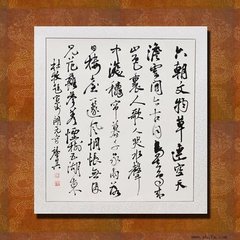 六朝文物草連空天
澹雲閒今古同鳥去鳥來
山色裏人歌人哭水聲
中深秋簾幕千家雨落
日樓臺一笛風惆悵無因
見范蠡參差煙樹五湖東
杜牧題宣州開元寺